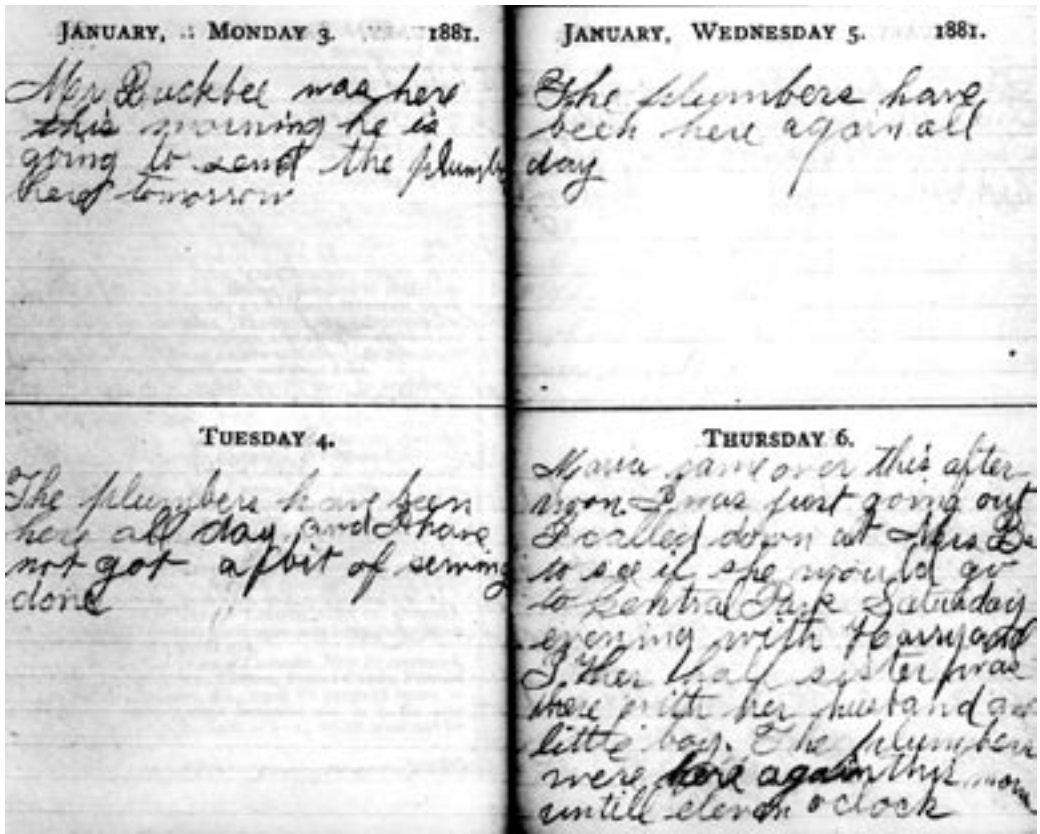 JANUARY, MONDAY 3. 1881.
Mr Buckbee was here
this morning he is
going to send the plumbe
here tomorrow
TUESDAY 4.
The plumbers have been
here all day and I have
not got a bit of sewing
done
JANUARY, WEDNESDAY 5. 1881.
The plumbers have
been here again all
day
THURSDAY 6.
Maria came over this after
noon I was just going out
I called down at Mrs
to see if she would go
to Central Park Saturday
evening with Harry and
I. Her half sister was
there with her husband
little boy. The plumbers
were here again this morn
untill eleven o clock